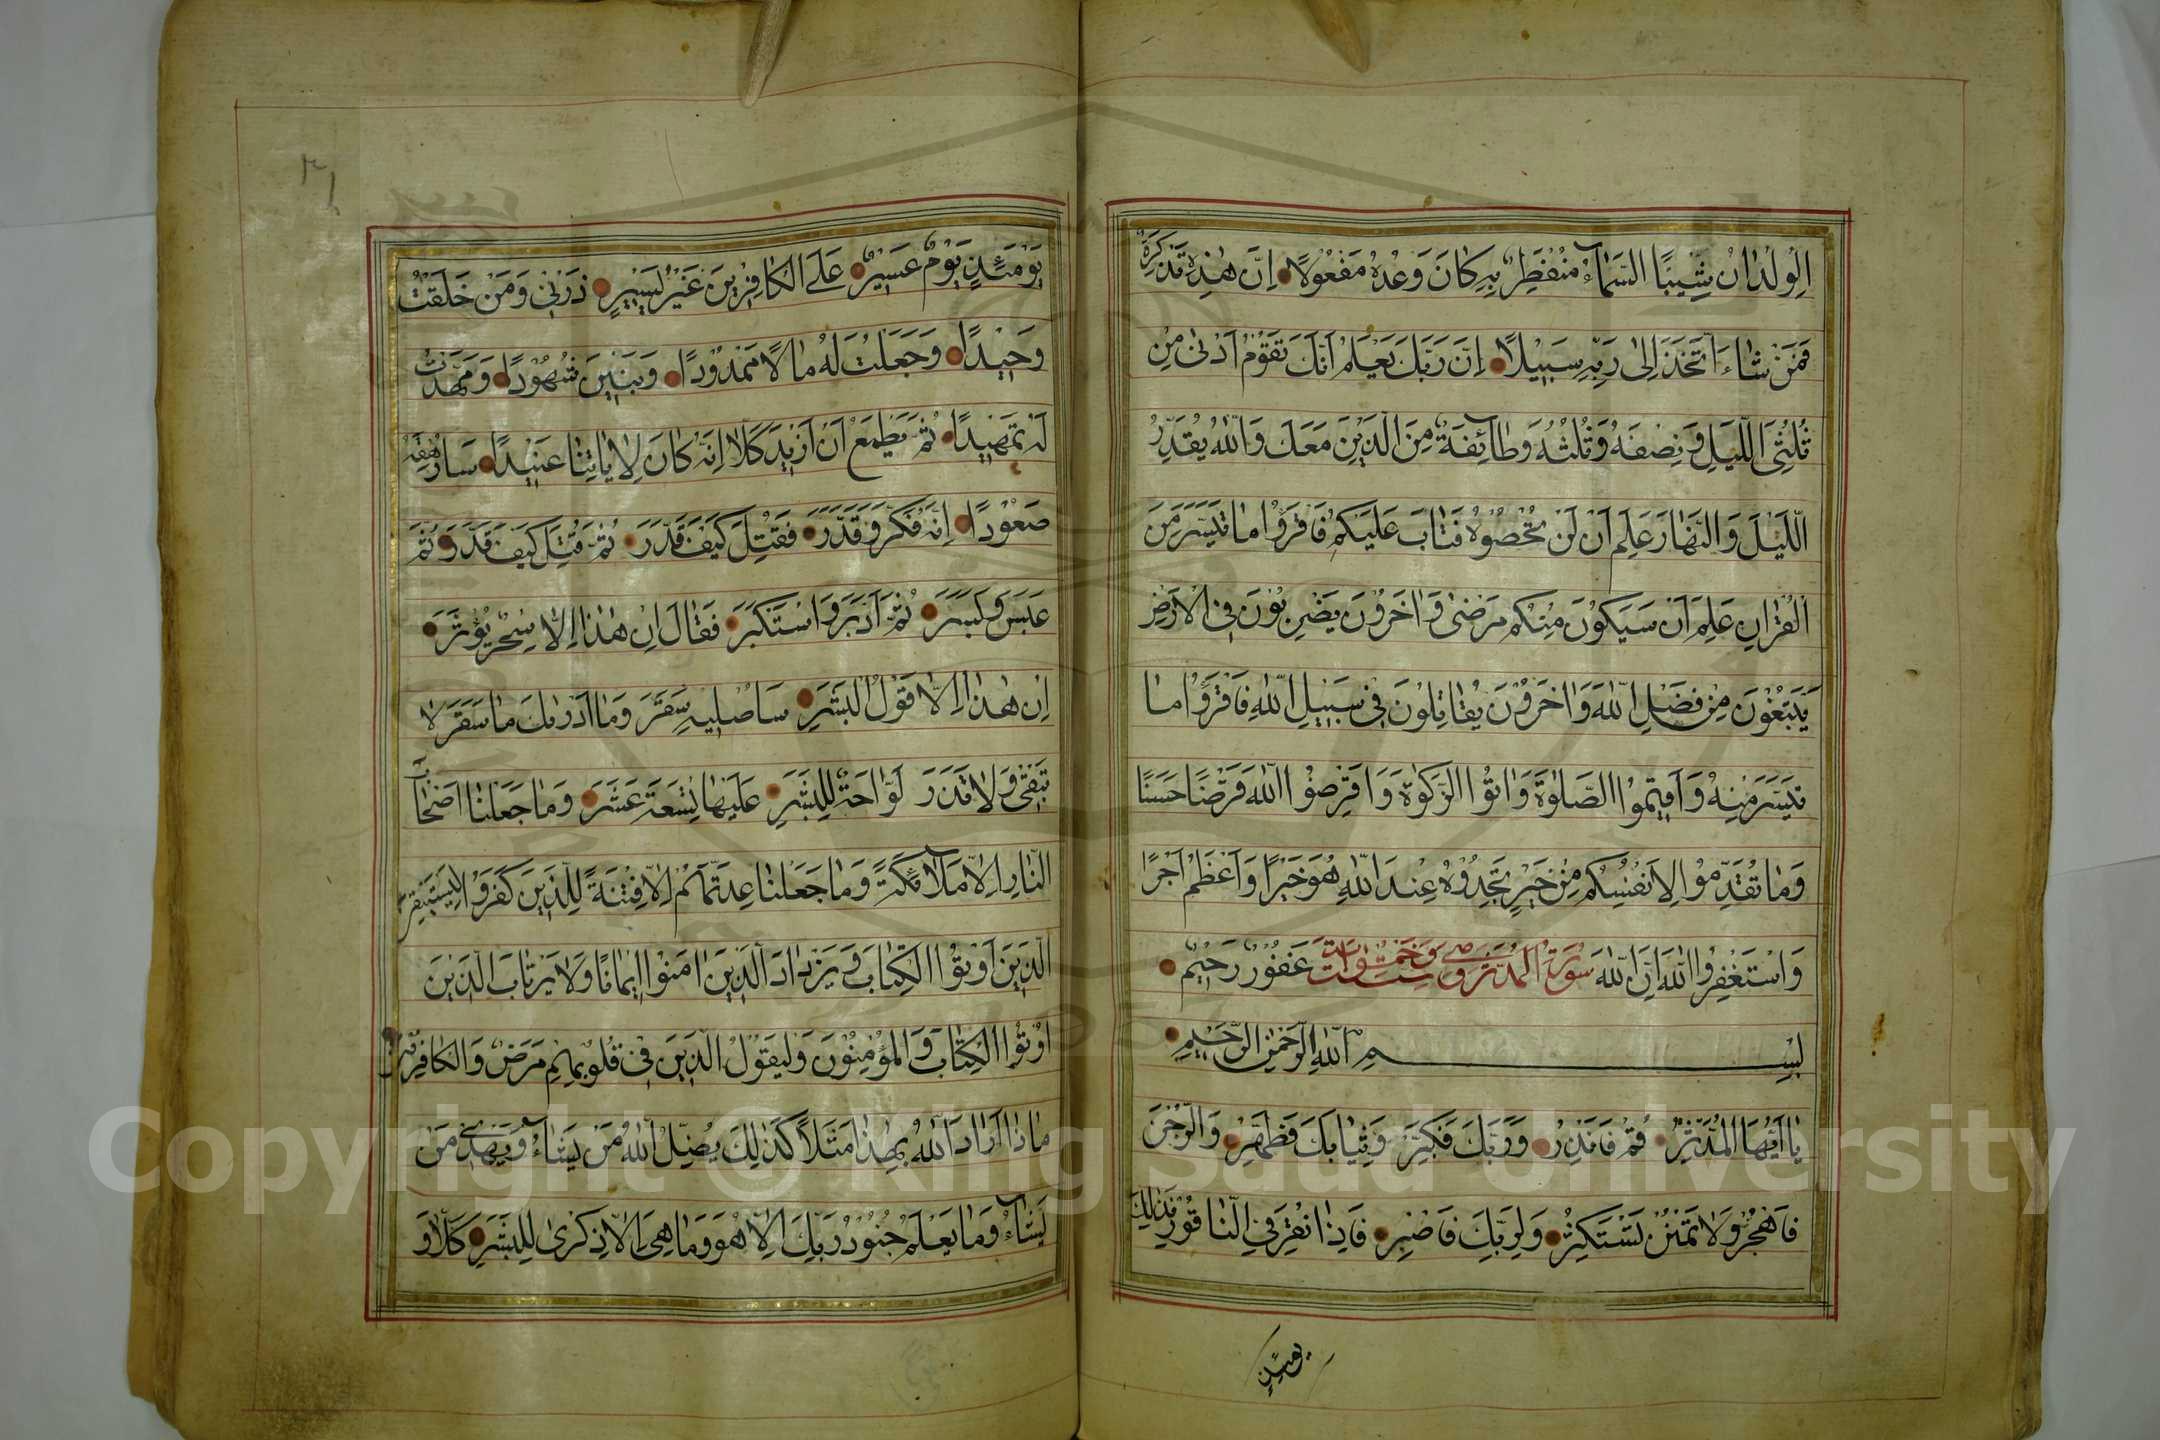 الْوِلْدَانَ شِيبًا السَّمَاءُ مُنْفَطِرٌ بِهِ كَانَ وَعْدُهُ مَفْعُولًا اِنَّ هٰذِهِ تَذْكِرَةٌ
فَمَنْ شَاءَ اتَّخَذَ اِلٰى رَبِّهِ سَبِيلًا اِنَّ رَبَّكَ يَعْلَمُ اَنَّكَ تَقُومُ اَدْنٰى مِنْ
ثُلُثَيِ اللَّيْلِ وَنِصْفَهُ وَثُلُثُهُ وَطَائِفَةٌ مِنَ الَّذِينَ مَعَكَ وَاللّٰهُ يُقَدِّرُ
اللَّيْلَ وَالنَّهَارَ عَلِمَ اَنْ لَنْ تُحْصُوهُ فَتَابَ عَلَيْكُمْ فَاقْرَؤُا مَا تَيَسَّرَ مِنَ
الْقُرْاٰنِ عَلِمَ اَنْ سَيَكُونُ مِنْكُمْ مَرْضٰى وَاٰخَرُونَ يَضْرِبُونَ فِي الْاَرْضِ
يَبْتَغُونَ مِنْ فَضْلِ اللّٰهِ وَاٰخَرُونَ يُقَاتِلُونَ فِي سَبِيلِ اللّٰهِ فَاقْرَؤُا مَا
تَيَسَّرَ مِنْهُ وَاَقِيمُوا الصَّلٰوةَ وَاٰتُوا الزَّكٰوةَ وَاَقْرِضُوا اللّٰهَ قَرْضًا حَسَنًا
وَمَا تُقَدِّمُوا لِاَنْفُسِكُمْ مِنْ خَيْرٍ تَجِدُوهُ عِنْدَ اللّٰهِ هُوَ خَيْرًا وَاَعْظَمَ اَجْرًا
وَاسْتَغْفِرُوا اللّٰهَ اِنَّ اللّٰهَ سُورَةُ الْمُدَّثِّرِ وَهِيَ خَمْسُونَ وَسِتُّ اٰيَاتٍ غَفُورٌ رَحِيمٌ
بِسْمِ اللّٰهِ الرَّحْمٰنِ الرَّحِيمِ
يَا اَيُّهَا الْمُدَّثِّرُ قُمْ فَاَنْذِرْ وَرَبَّكَ فَكَبِّرْ وَثِيَابَكَ فَطَهِّرْ وَالرُّجْزَ
فَاهْجُرْ وَلَا تَمْنُنْ تَسْتَكْثِرُ وَلِرَبِّكَ فَاصْبِرْ فَاِذَا نُقِرَ فِي النَّاقُورِ فَذٰلِكَ
يومئذٍ
يَوْمَئِذٍ يَوْمٌ عَسِيرٌ عَلَى الْكَافِرِينَ غَيْرُ يَسِيرٍ ذَرْنِي وَمَنْ خَلَقْتُ
وَحِيدًا وَجَعَلْتُ لَهُ مَالًا مَمْدُودًا وَبَنِينَ شُهُودًا وَمَهَّدْتُ
لَهُ تَمْهِيدًا ثُمَّ يَطْمَعُ اَنْ اَزِيدَ كَلَّا اِنَّهُ كَانَ لِاٰيَاتِنَا عَنِيدًا سَاُرْهِقُهُ
صَعُودًا اِنَّهُ فَكَّرَ وَقَدَّرَ فَقُتِلَ كَيْفَ قَدَّرَ ثُمَّ قُتِلَ كَيْفَ قَدَّرَ ثُمَّ
عَبَسَ وَبَسَرَ ثُمَّ اَدْبَرَ وَاسْتَكْبَرَ فَقَالَ اِنْ هٰذَا اِلَّا سِحْرٌ يُؤْثَرُ
اِنْ هٰذَا اِلَّا قَوْلُ الْبَشَرِ سَاُصْلِيهِ سَقَرَ وَمَا اَدْرٰيكَ مَا سَقَرُ لَا
تُبْقِي وَلَا تَذَرُ لَوَّاحَةٌ لِلْبَشَرِ عَلَيْهَا تِسْعَةَ عَشَرَ وَمَا جَعَلْنَا اَصْحَابَ
النَّارِ اِلَّا مَلٰئِكَةً وَمَا جَعَلْنَا عِدَّتَهُمْ اِلَّا فِتْنَةً لِلَّذِينَ كَفَرُوا لِيَسْتَيْقِنَ
الَّذِينَ اُوتُوا الْكِتَابَ وَيَزْدَادَ الَّذِينَ اٰمَنُوا اِيمَانًا وَلَا يَرْتَابَ الَّذِينَ
اُوتُوا الْكِتَابَ وَالْمُؤْمِنُونَ وَلِيَقُولَ الَّذِينَ فِي قُلُوبِهِمْ مَرَضٌ وَالْكَافِرُونَ
مَاذَا اَرَادَ اللّٰهُ بِهٰذَا مَثَلًا كَذٰلِكَ يُضِلُّ اللّٰهُ مَنْ يَشَاءُ وَيَهْدِي مَنْ
يَشَاءُ وَمَا يَعْلَمُ جُنُودَ رَبِّكَ اِلَّا هُوَ وَمَا هِيَ اِلَّا ذِكْرٰى لِلْبَشَرِ كَلَّا وَ
Copyright © King Saud University